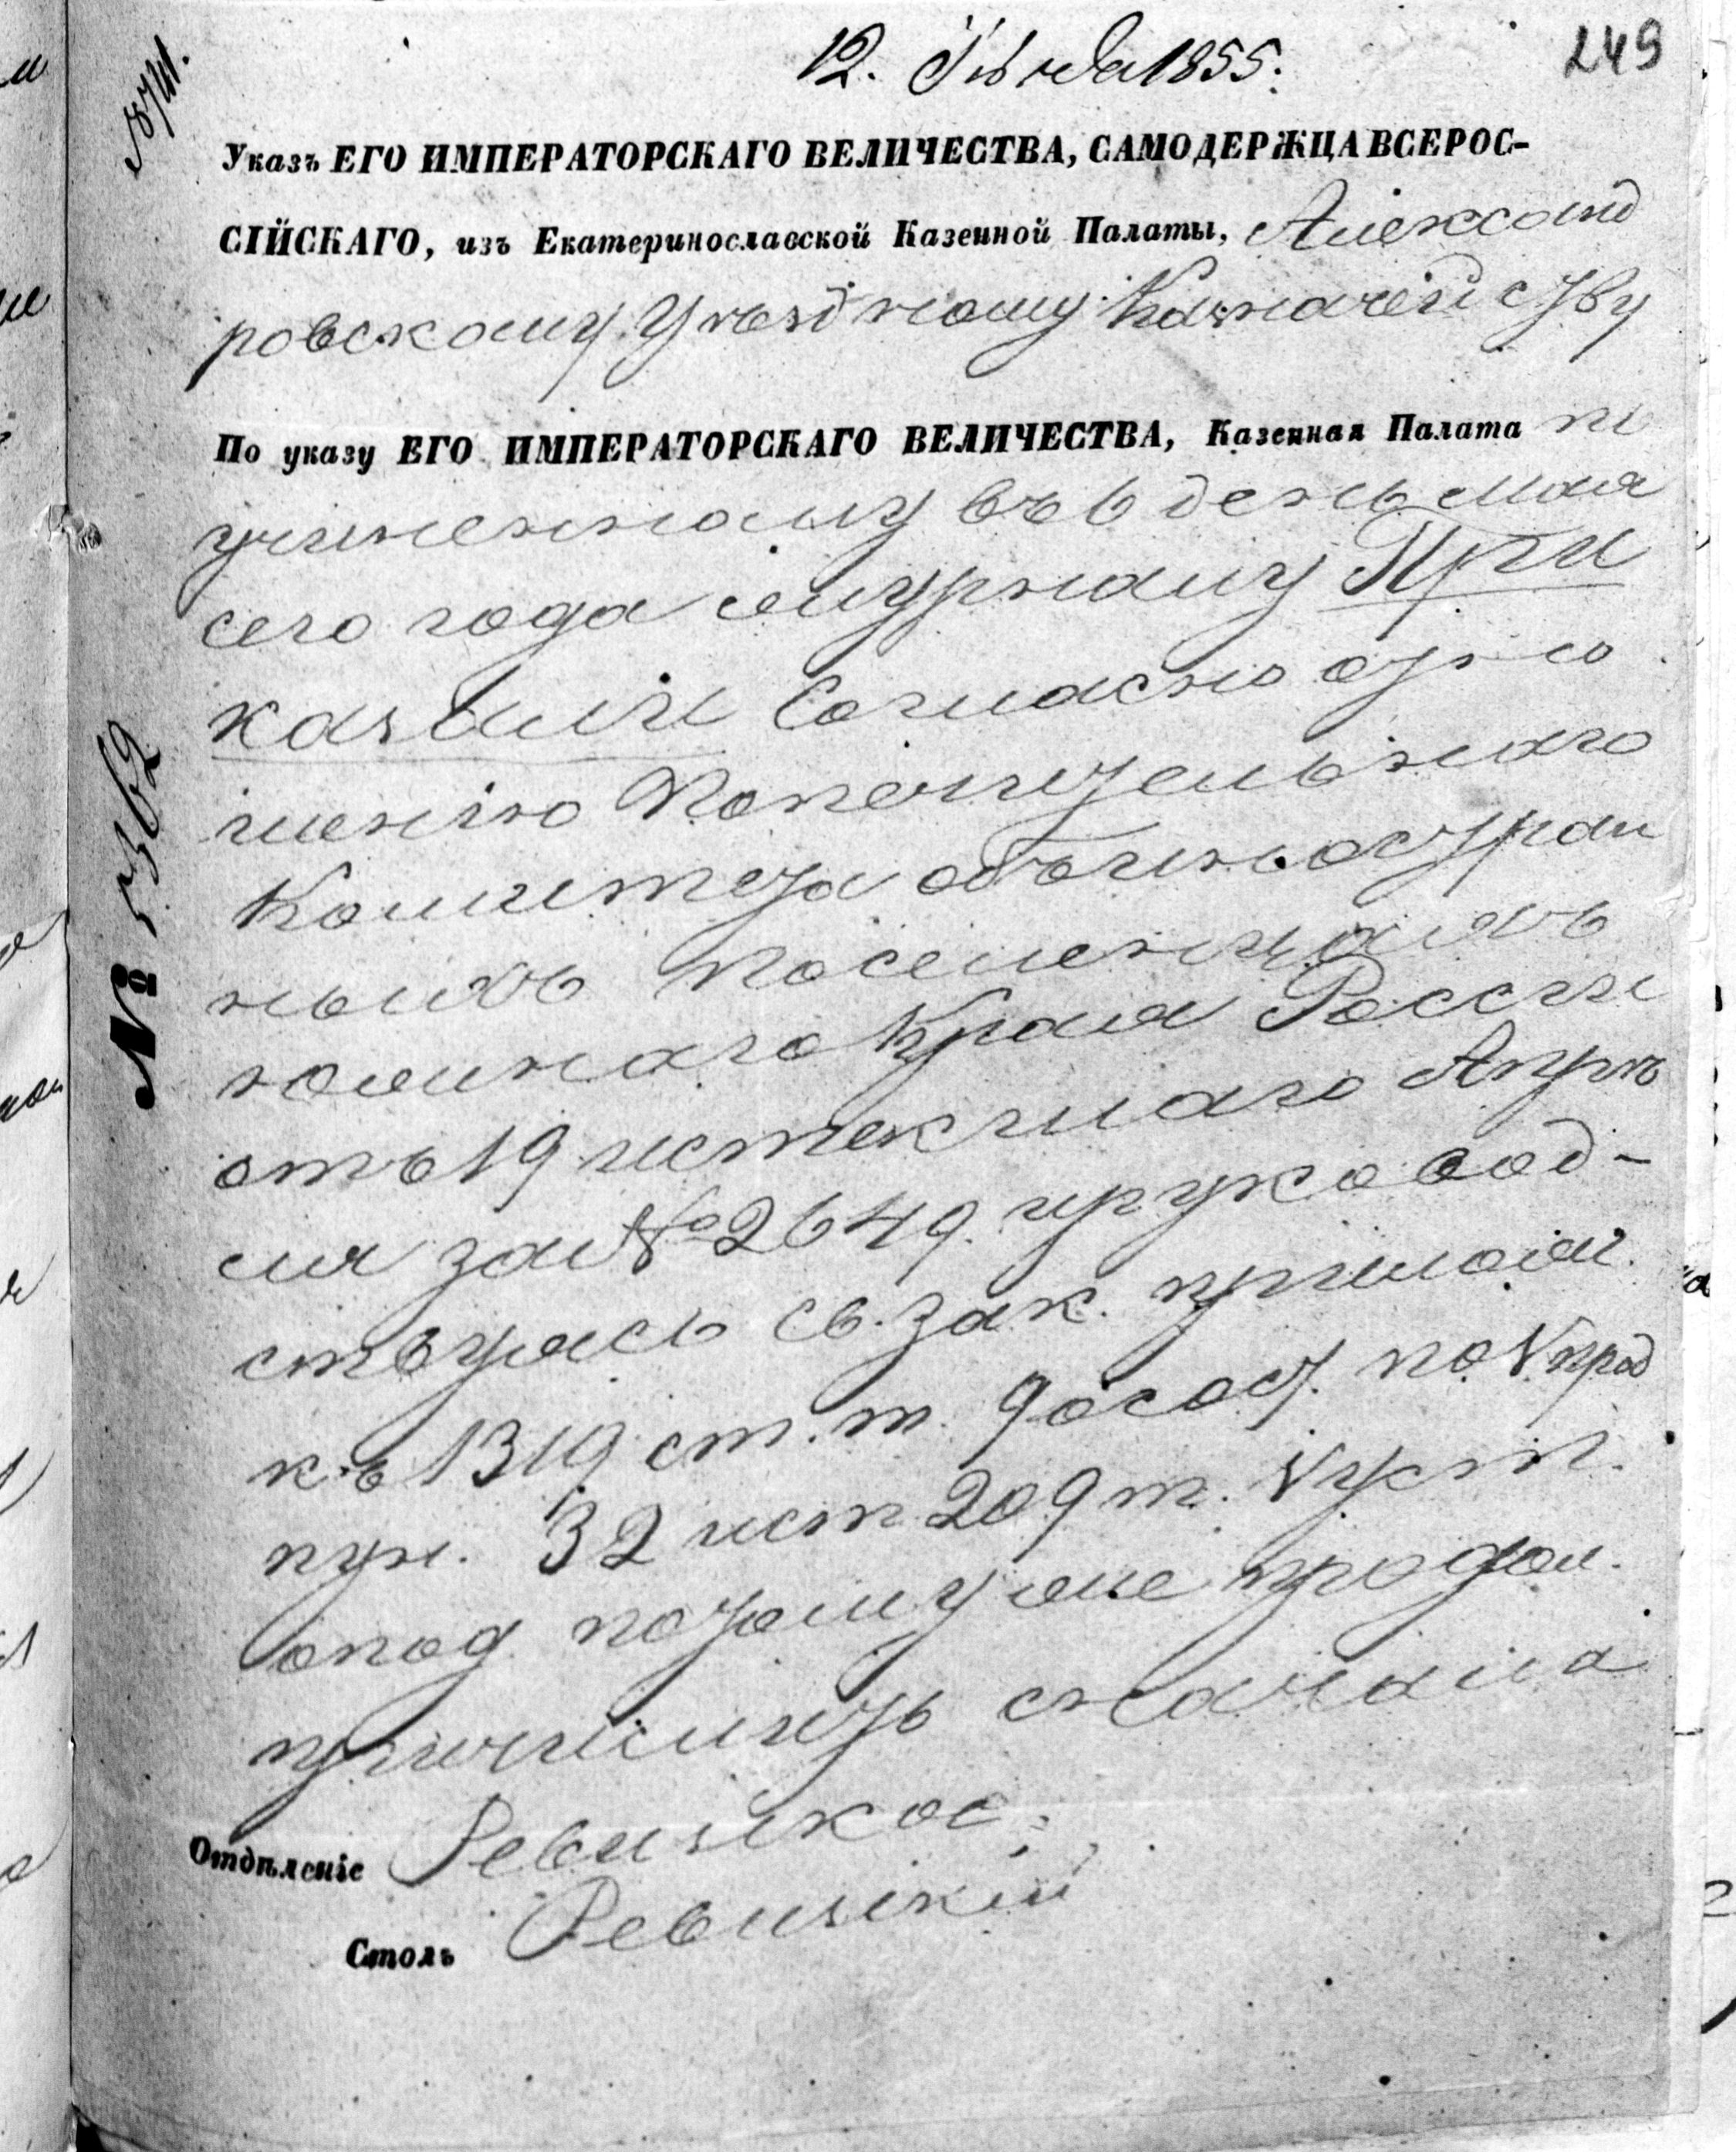 12. 1855.
249
Указъ ЕГО ИМПЕРАТОРСКАГО ВЕЛИЧЕСТВА, САМОДЕРЖЦА ВСЕРОС-
СІЙСКАГО, изъ Екатеринославской Казенной Палаты, Александ
ровскому Уѣздному Казначейству
По указу ЕГО ИМПЕРАТОРСКАГО ВЕЛИЧЕСТВА, Казенная Палата по
учиненному въ 6 день мая
сего года журналу При
казали Согласно отно
шенію Попечительнаго
Комитета объ иностран
ныхъ поселенцахъ
южнаго Края Россіи
отъ 19 истекшаго Апрѣ
ля за № 2649. и руковод-
ствуясь св. зак. прилож.
къ 1319 ст. т. 9 о сост. по V прод
пун. 32 и ст 209 т. V уст.
о под. потому же продол.
причислить сначала
Отдѣленіе Ревизкое
Столъ Ревизкій
№ 5362